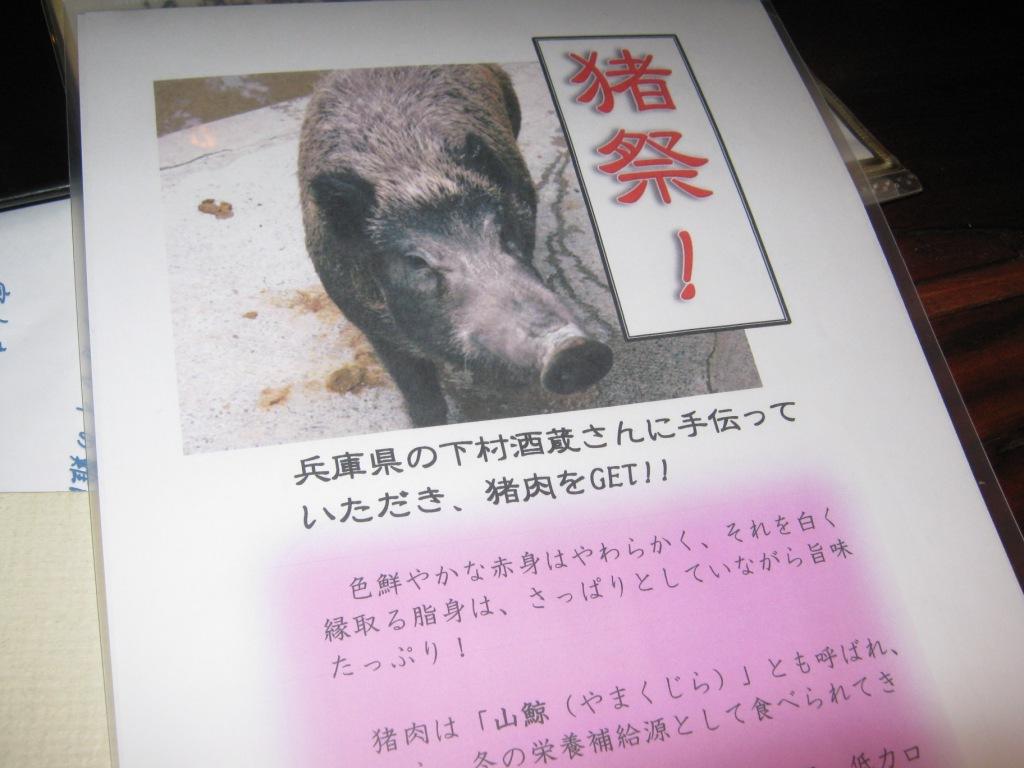 猪祭！
兵庫県の下村酒蔵さんに手伝って
いただき、猪肉をGET!!
色鮮やかな赤身はやわらかく、それを白く
縁取る脂身は、さっぱりとしていながら旨味
たっぷり！
猪肉は「山鯨（やまくじら）」とも呼ばれ、
冬の栄養補給源として食べられてき
低カロ